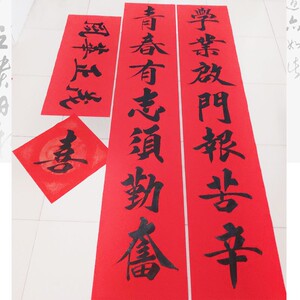 學業啟門報苦辛
青春有志須勤奮
風華正茂
喜